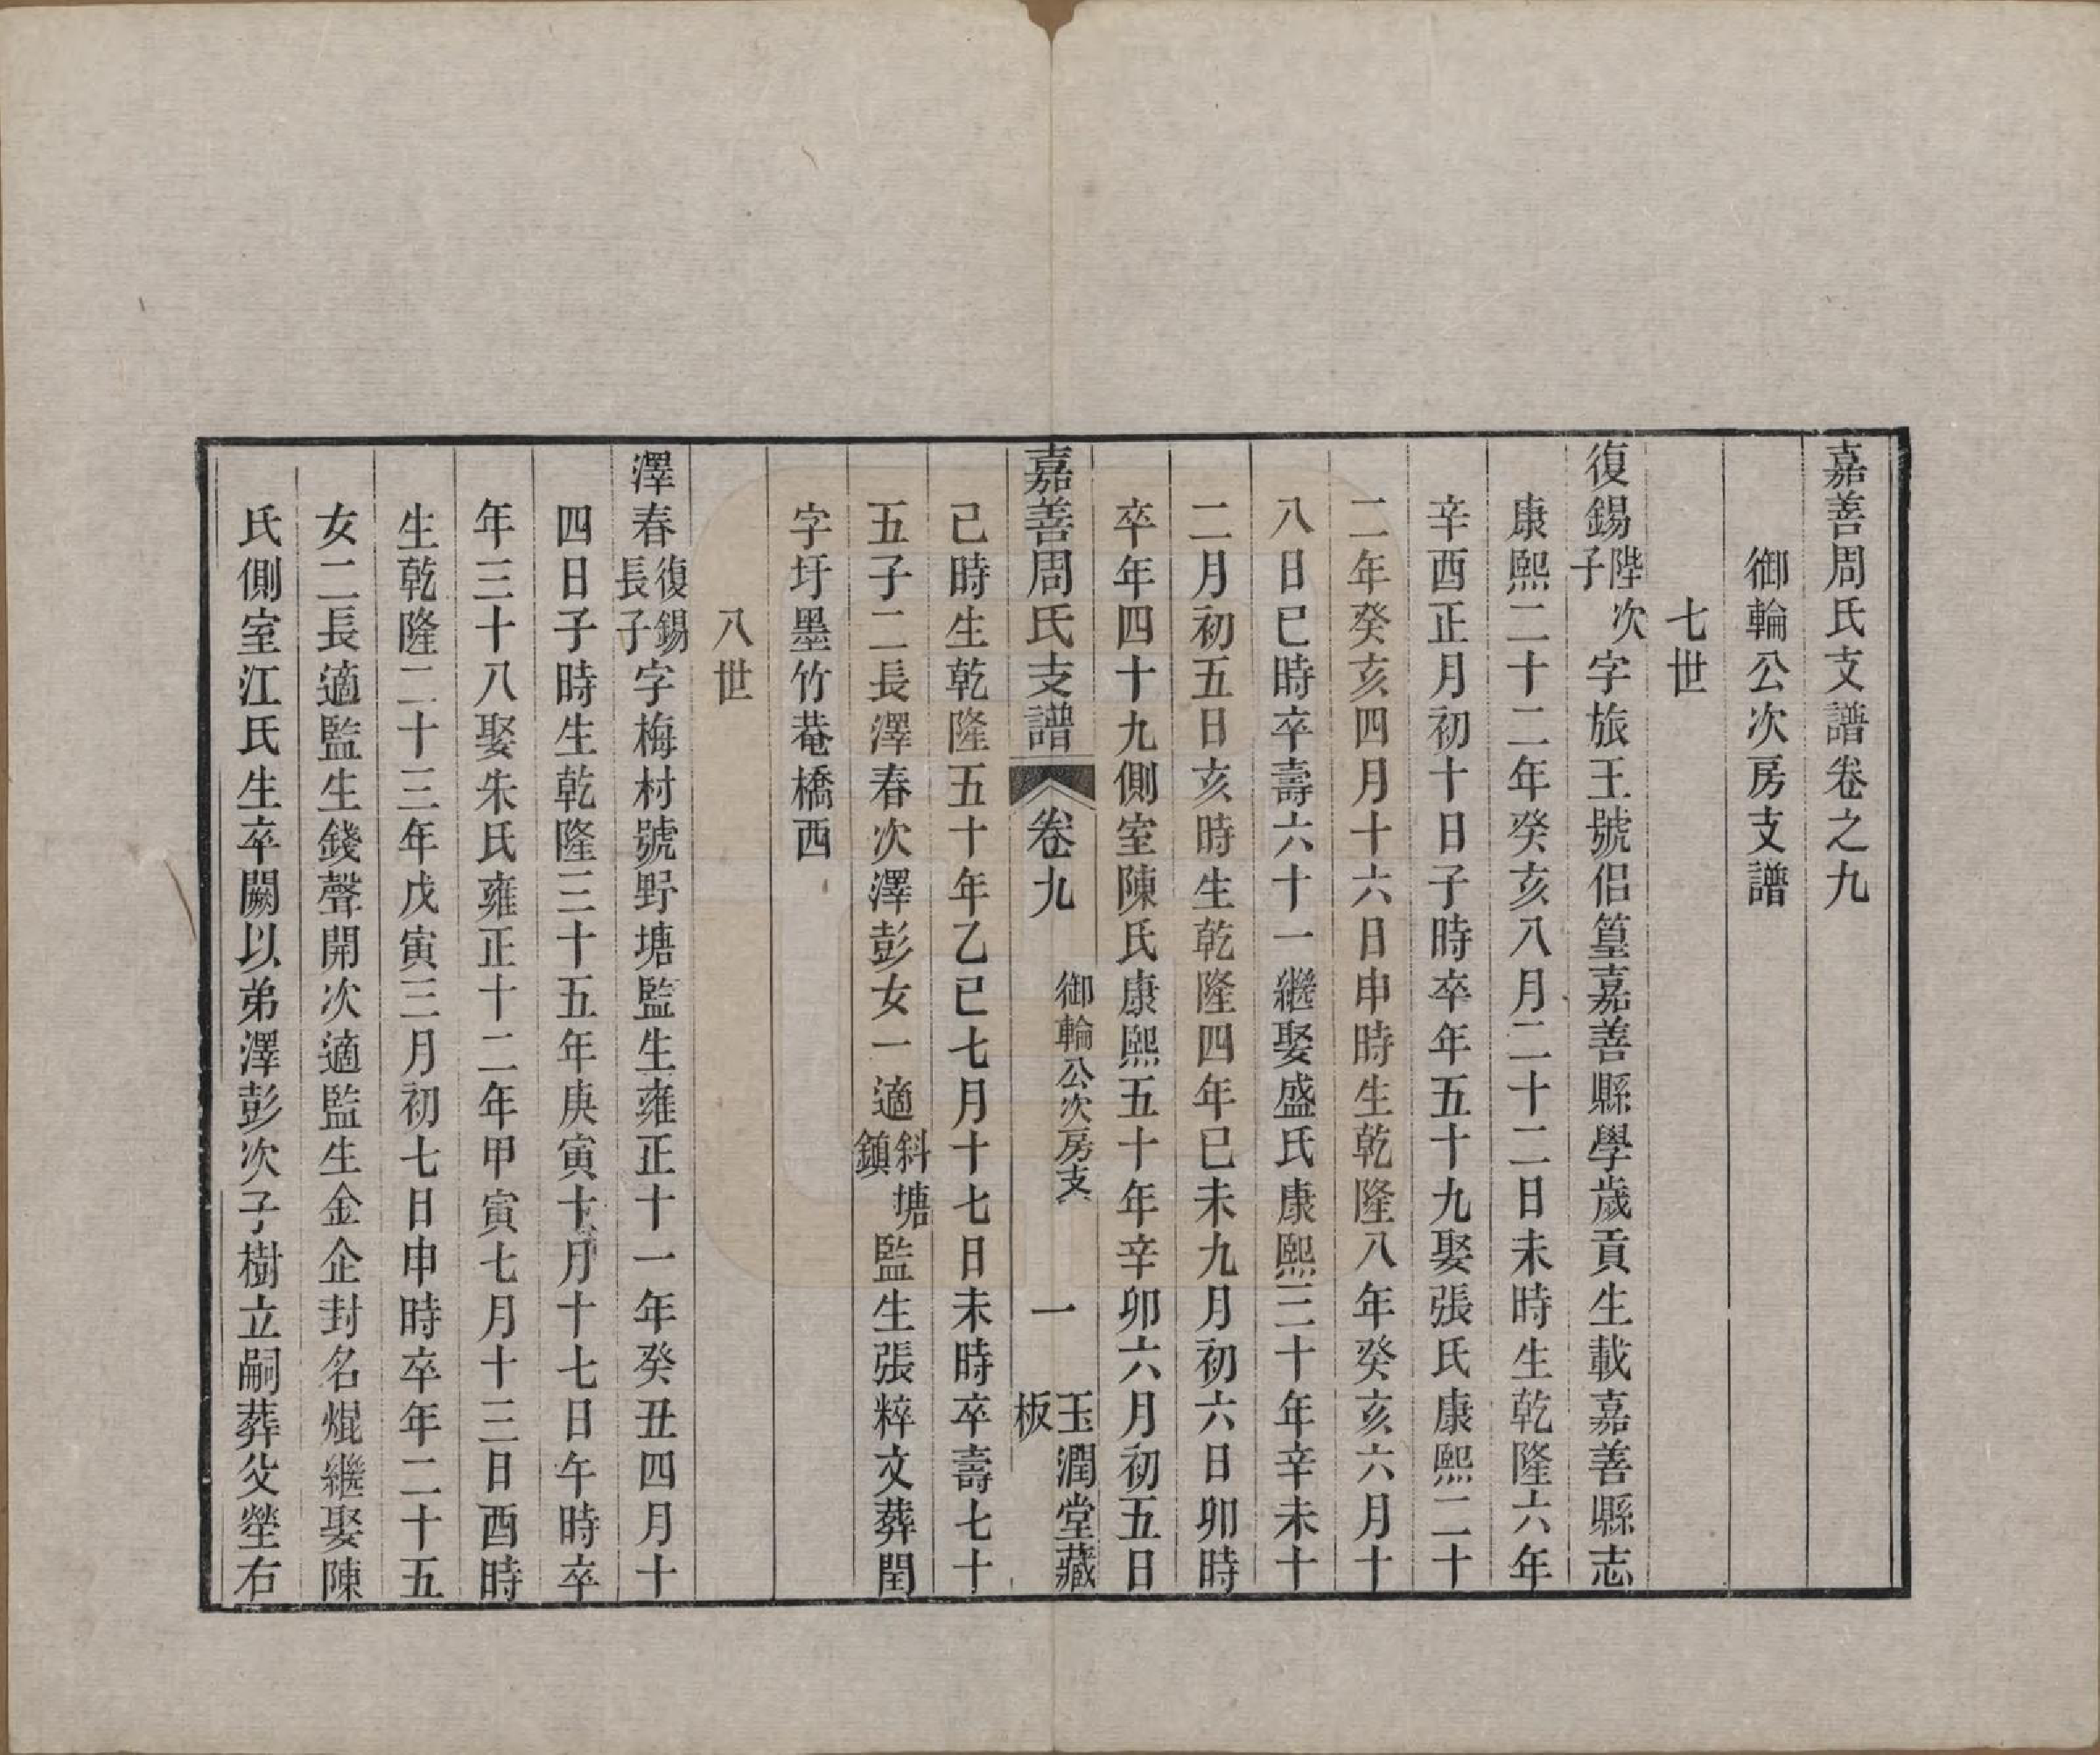 嘉善周氏支譜卷之九
御輪公次房支譜
七世
復錫陛次子字旅王號侶篁嘉善縣學歲貢生載嘉善縣志
康熙二十二年癸亥八月二十二日未時生乾隆六年
辛酉正月初十日子時卒年五十九娶張氏康熙二十
二年癸亥四月十六日申時生乾隆八年癸亥六月十
八日巳時卒壽六十一繼娶盛氏康熙三十年辛未十
二月初五日亥時生乾隆四年己未九月初六日卯時
卒年四十九側室陳氏康熙五十年辛卯六月初五日
嘉善周氏支譜 卷九 御輪公次房支 一 玉潤堂藏板
巳時生乾隆五十年乙巳七月十七日未時卒壽七十
五子二長澤春次澤彭女一適斜塘鎮監生張粹文葬閏
字圩墨竹菴橋西
八世
澤春復錫長子字梅村號野塘監生雍正十一年癸丑四月十
四日子時生乾隆三十五年庚寅十月十七日午時卒
年三十八娶朱氏雍正十二年甲寅七月十三日酉時
生乾隆二十三年戊寅三月初七日申時卒年二十五
女二長適監生錢聲開次適監生金企封名焜繼娶陳
氏側室江氏生卒闕以弟澤彭次子樹立嗣葬父塋右